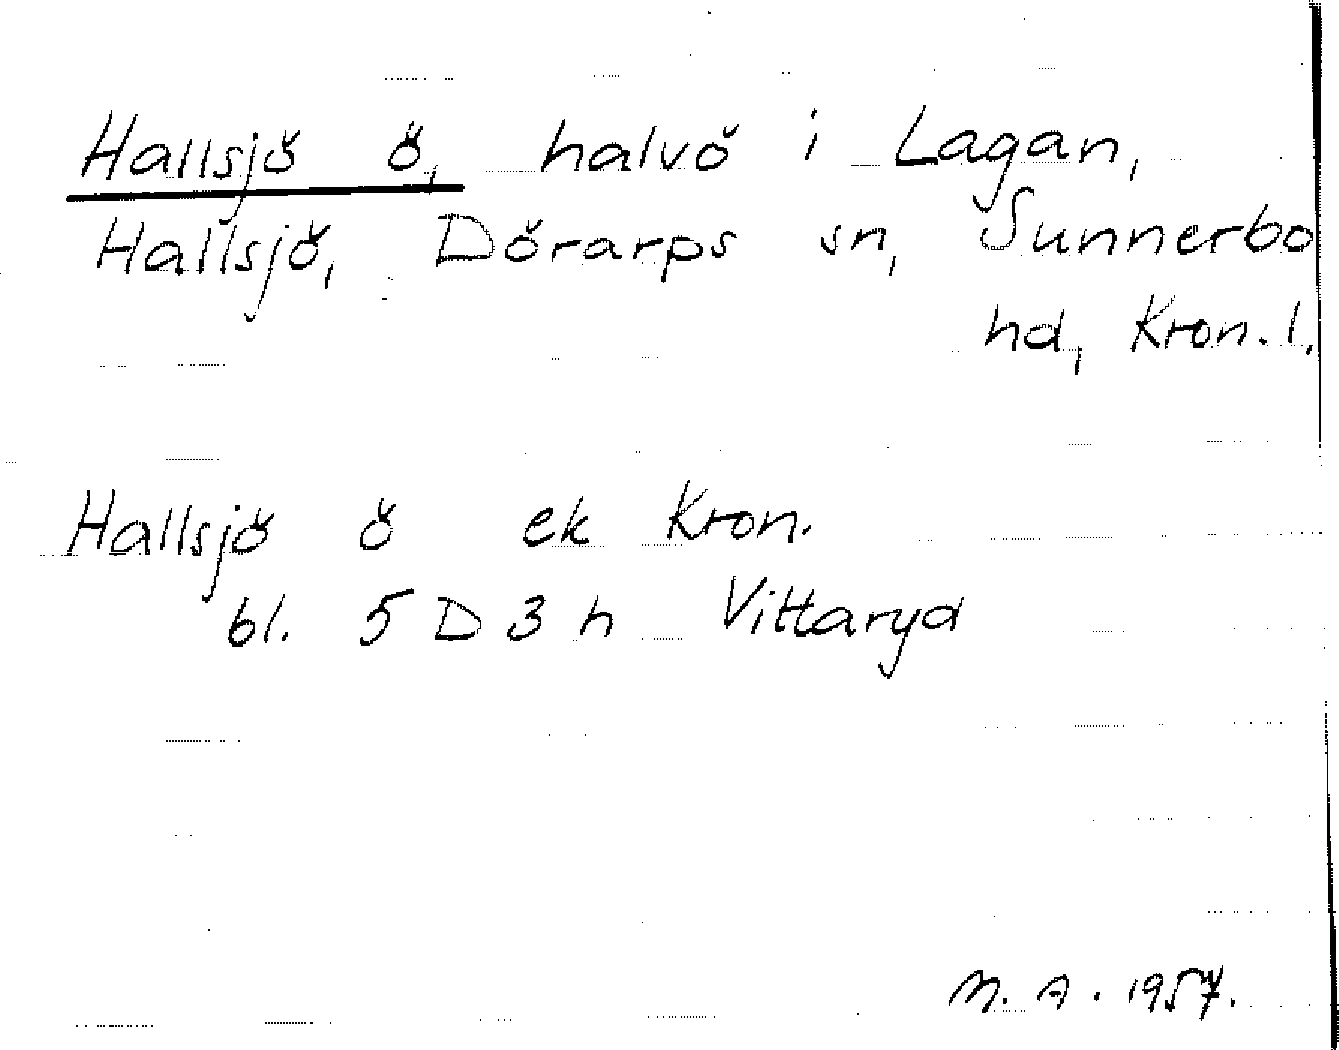 Hallsjö ö, halvö i Lagan,
Hallsjö, Dörarps sn, Sunnerbo
hd, Kron. l.
Hallsjö ö ek Kron.
bl. 5 D 3 h Vittaryd
M. A. 1957.